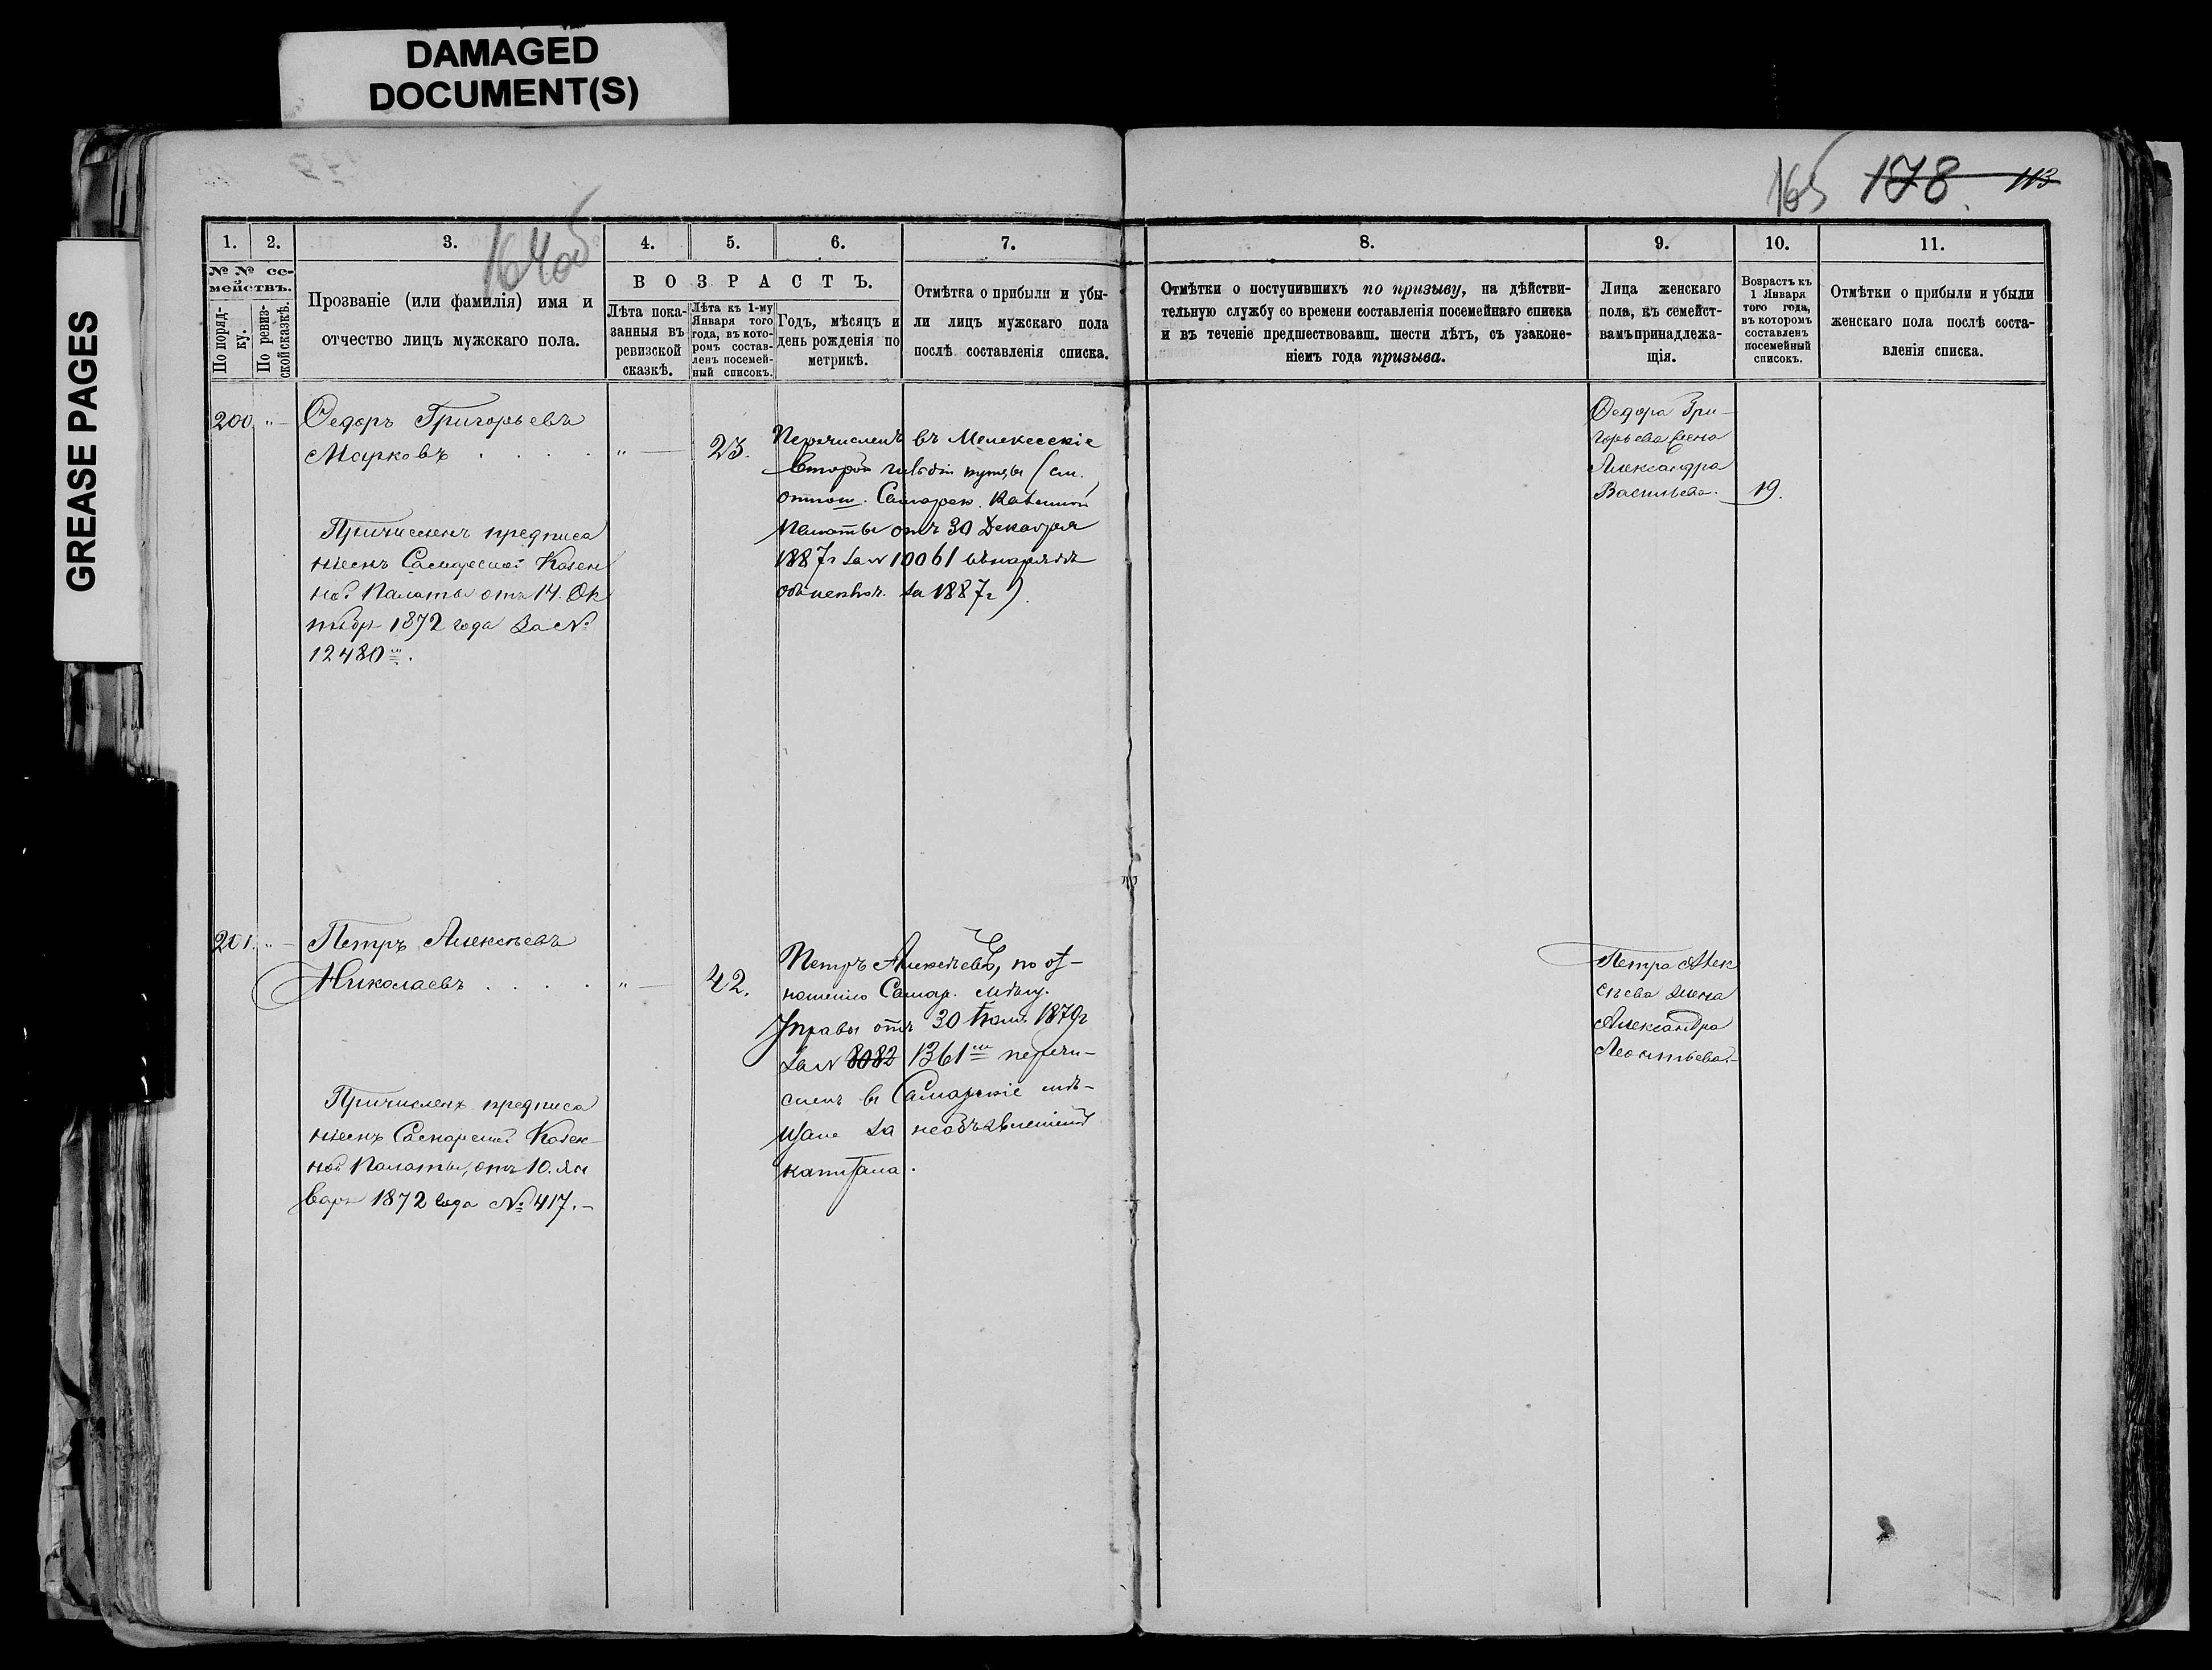 DAMAGED
DOCUMENT(S)
GREASE PAGES
165 178 113
164об
1.
2.
3.
4.
5.
6.
7.
8.
9.
10.
11.
№ № се-
мействъ.
По поряд-
ку.
По ревиз-
ской сказкѣ.
Прозваніе (или фамилія) имя и
отчество лицъ мужскаго пола.
ВОЗРАСТЪ.
Лѣта пока-
занныя въ
ревизской
сказкѣ.
Лѣта къ 1-му
Января того
года, въ кото-
ромъ состав-
ленъ посемей-
ный список.
Годъ, мѣсяцъ и
день рожденія по
метрикѣ.
Отмѣтка о прибыли и убы-
ли лицъ мужскаго пола
послѣ составленія списка.
Отмѣтки о поступившихъ по призыву, на дѣйстви-
тельную службу со времени составленія посемейнаго списка
и въ теченіе предшествовавш. шести лѣтъ, съ узаконе-
ніемъ года призыва.
Лица женскаго
пола, къ семейст-
вамъ принадлежа-
щія.
Возрастъ къ
1 Января
того года,
въ которомъ
составленъ
посемейный
списокъ.
Отмѣтки о прибыли и убыли
женскаго пола послѣ соста-
вленія списка.
200. „ —
Ѳедоръ Григорьевъ
Марковъ . . . . „ — 23.
Причисленъ предписа
ніемъ Самарской Казен
ной Палаты отъ 14. Ок
тября 1872 года За №
12480.
Перечисленъ въ Мелекесскіе
второй гильдіи купцы (см.
отнош. Самарск. Казенной
Палаты отъ 30 Декабря
1887 г за № 10061 въ нарядѣ
за 1887 г).
Ѳедора Гри-
горьева жена
Александра
Васильева. 19.
201. „ —
Петръ Алексѣевъ
Николаевъ . . . . „ — 42.
Причисленъ предписа
ніемъ Самарской Казен-
ной Палаты, отъ 10. Ян
варя 1872 года № 417. —
Петръ Алексѣевъ, по от-
ношенію Самар. Мѣщ.
Управы отъ 30 1879 г
за № 8082 1361 перечи-
сленъ въ Самарскіе мѣ-
щане за необъявленіемъ
капитала.
Петра Алек
сѣева жена
Александра
Леонтьева. —